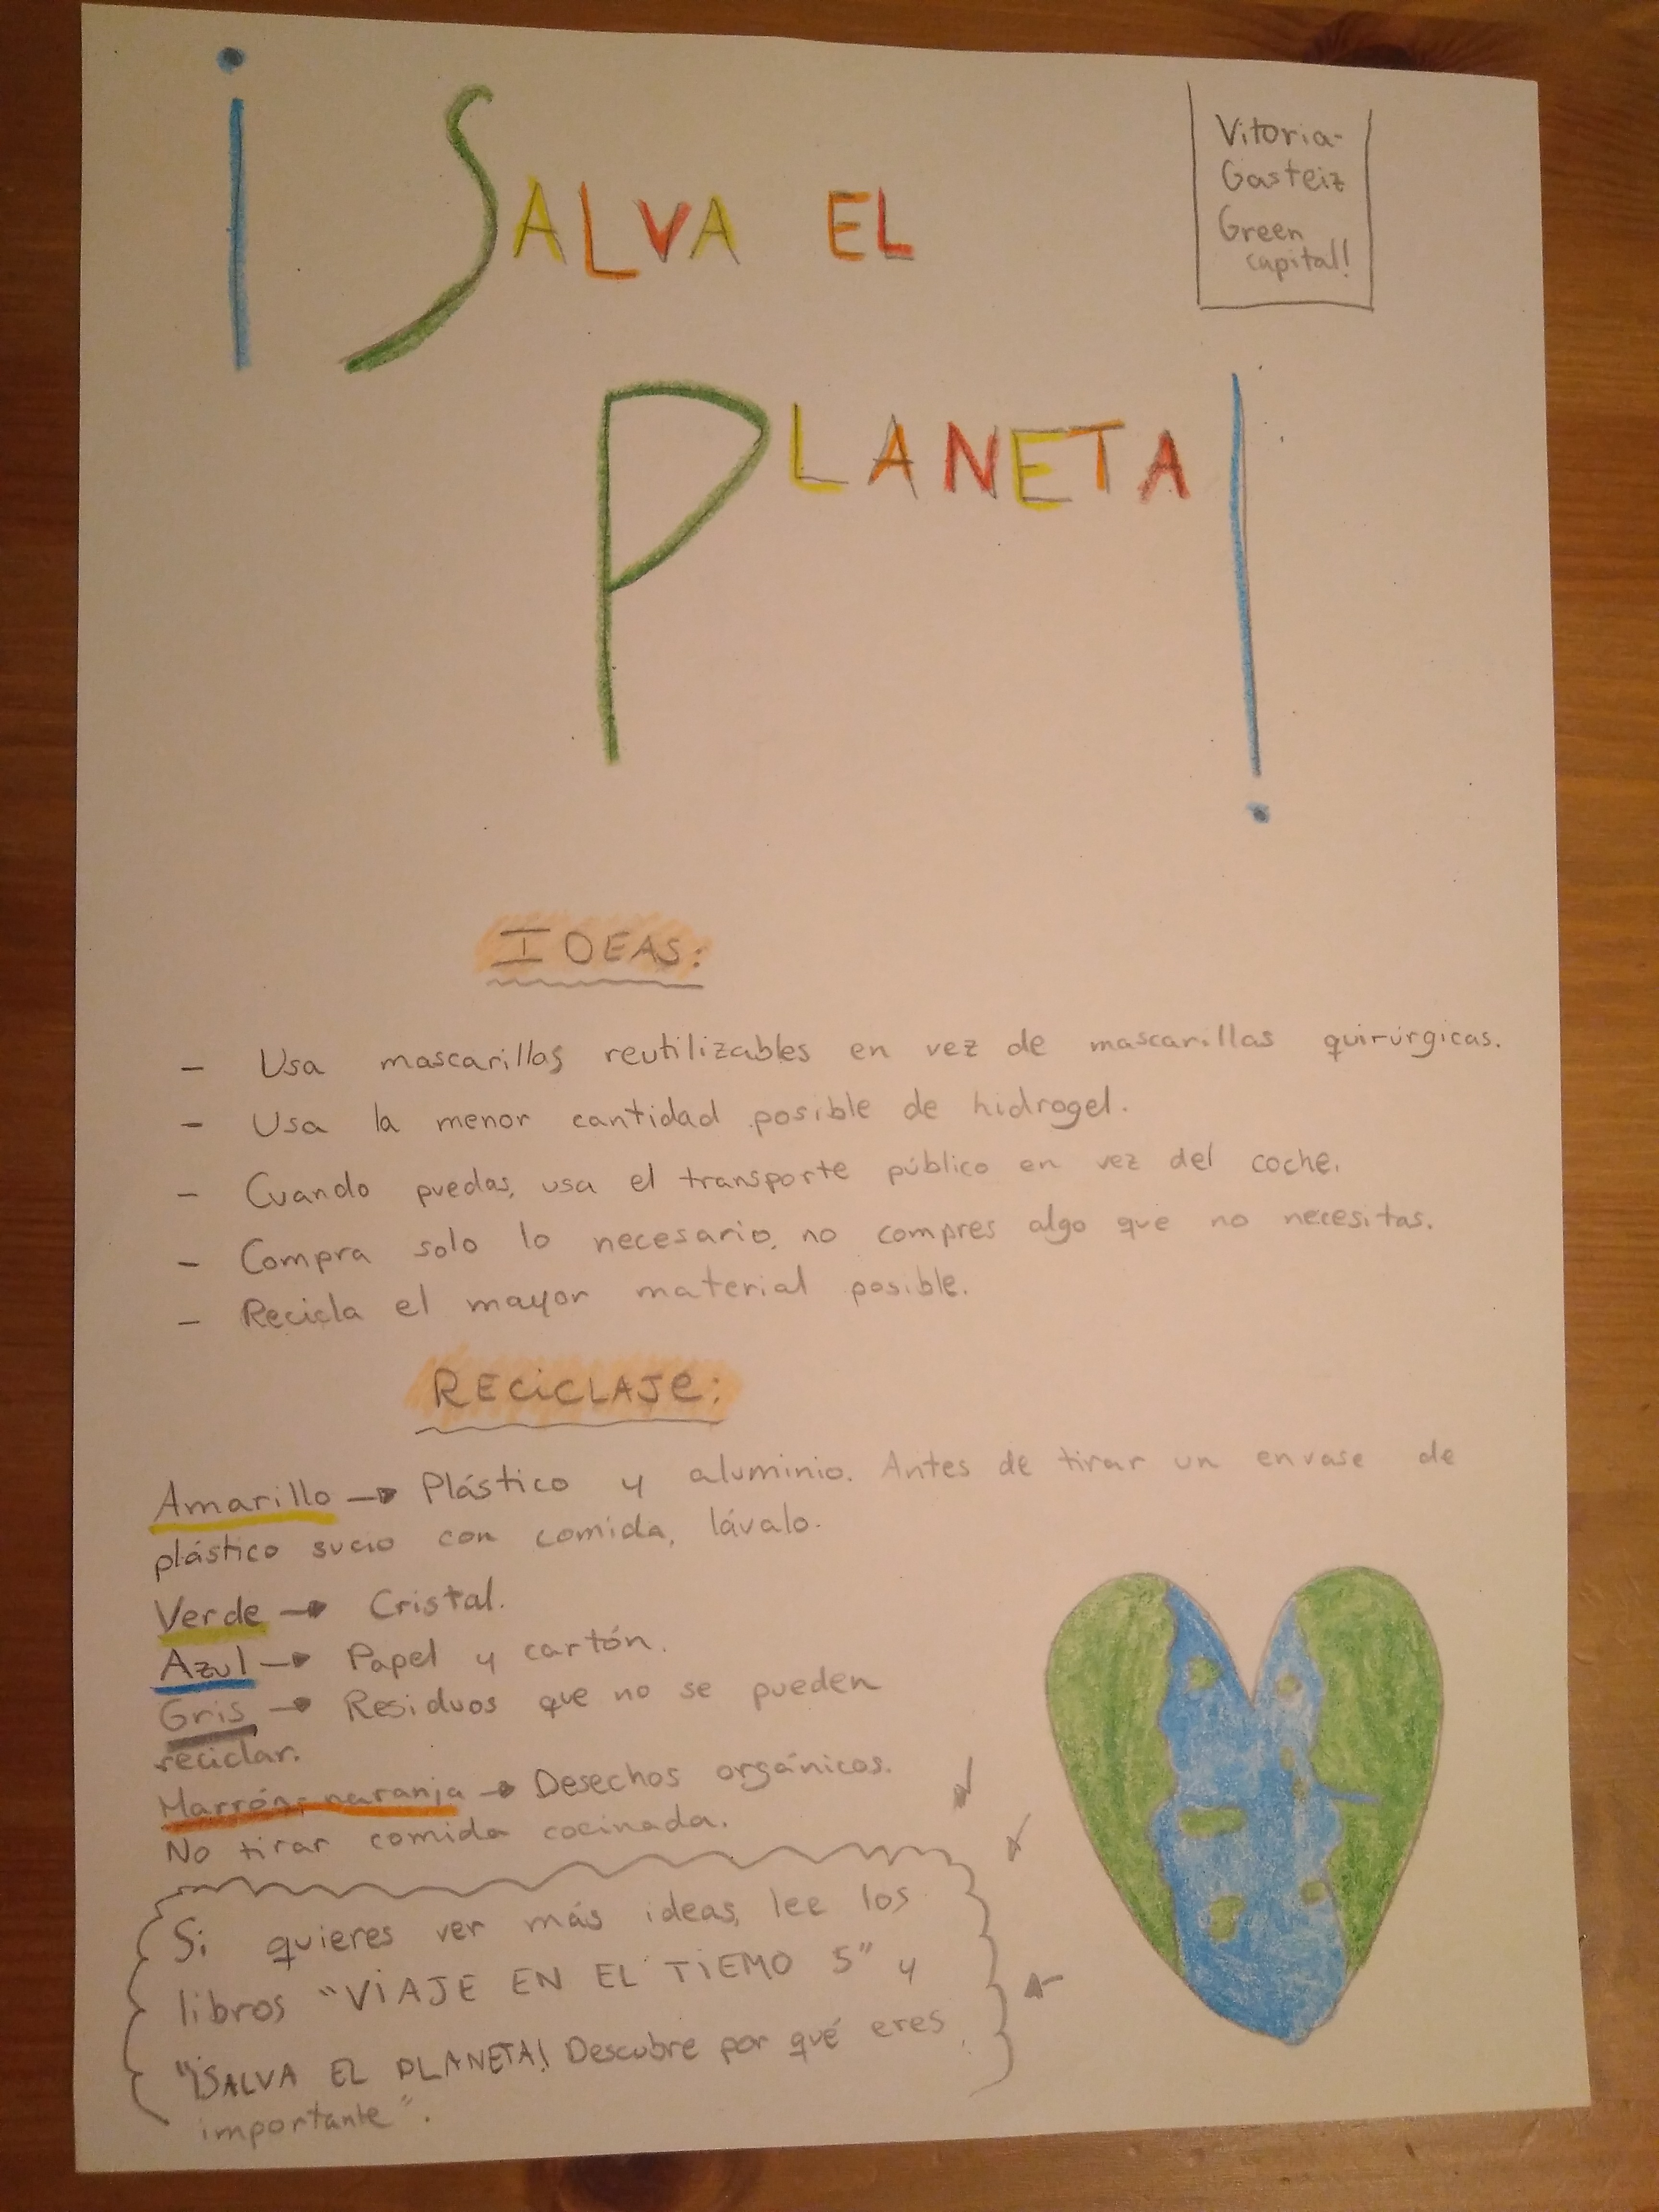 ¡SALVA EL
PLANETA!
Vitoria-
Gasteiz
Green
capital!
IDEAS:
- Usa mascarillas reutilizables en vez de mascarillas quirúrgicas.
- Usa la menor cantidad posible de hidrogel.
- Cuando puedas, usa el transporte público en vez del coche.
- Compra solo lo necesario, no compres algo que no necesitas.
- Recicla el mayor material posible.
RECiCLAJe:
Amarillo → Plástico y aluminio. Antes de tirar un envase de
plástico sucio con comida, lávalo.
Verde → Cristal.
Azul → Papel y cartón.
Gris → Residuos que no se pueden
reciclar.
Marrón, naranja → Desechos orgánicos.
No tirar comida cocinada.
Si quieres ver más ideas, lee los
libros "ViAJE EN EL TiEMO 5" y
"¡SALVA EL PLANETA! Descubre por qué eres
importante".